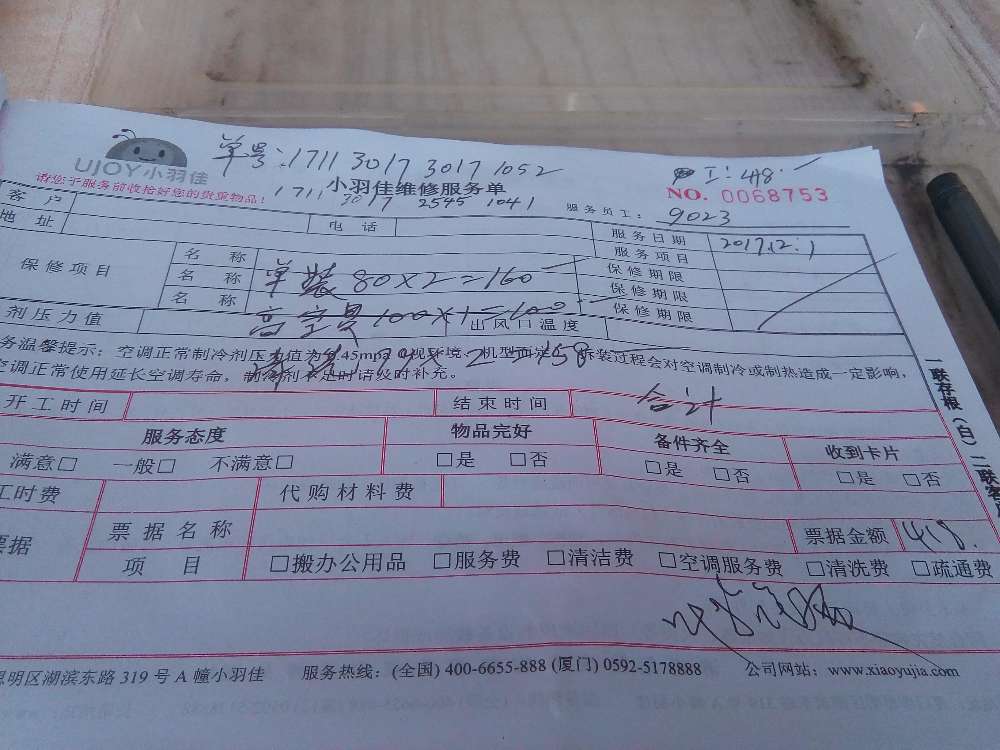 单号:1711 3017 3017 1052
UJOY小羽佳
请您于服务前收拾好您的贵重物品!
小羽佳维修服务单
1711 3017 2545 1041
NO. 0068753
服务员工: 9023
客户
地址
电话
服务日期 2017.12.1
服务项目
保修项目
名称
名称 单装 80×2=160
名称
保修期限
保修期限
保修期限
剂压力值 高空费 100×1=100 出风口温度
务温馨提示: 空调正常制冷剂压力值为0.45mpa (视环境、机型而定), 拆装过程会对空调制冷或制热造成一定影响,
空调正常使用延长空调寿命, 制冷剂不足时请及时补充。
79×2=158
开工时间 结束时间 合计
服务态度 物品完好 备件齐全 收到卡片
满意□ 一般□ 不满意□ □是 □否 □是 □否 □是 □否
工时费 代购材料费
票据 票据名称 票据金额 418.
项目 □搬办公用品 □服务费 □清洁费 □空调服务费 □清洗费 □疏通费
一联存根(白) 二联客
思明区湖滨东路 319 号 A 幢小羽佳 服务热线: (全国) 400-6655-888 (厦门) 0592-5178888 公司网站: www.xiaoyujia.com